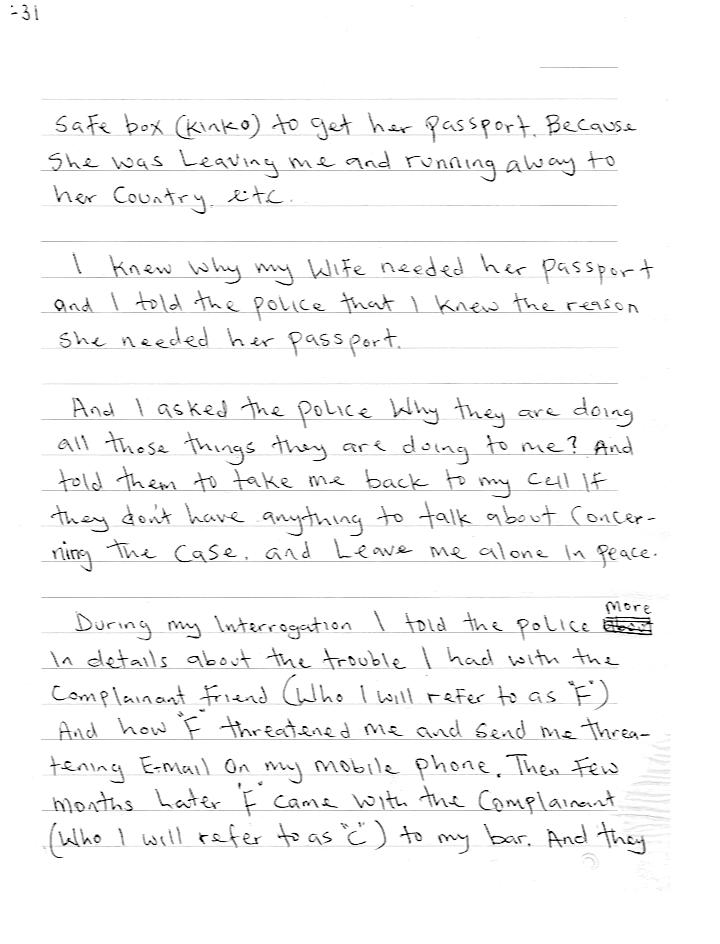 -31
Safe box (kinko) to get her passport. Because
She was Leaving me and running away to
her Country. etc.
I knew why my Wife needed her passport
and I told the police that I knew the reason
she needed her passport.
And I asked the police Why they are doing
all those things they are doing to me? And
told them to take me back to my cell If
they don't have anything to talk about Concer-
ning the Case. and Leave me alone In peace.
During my Interrogation I told the police more
In details about the trouble I had with the
Complainant friend (Who I will refer to as "F")
And how "F" threatened me and Send me threa-
tening E-mail On my mobile phone. Then Few
months Later "F" came with the Complainant
(Who I will refer to as "C") to my bar. And they